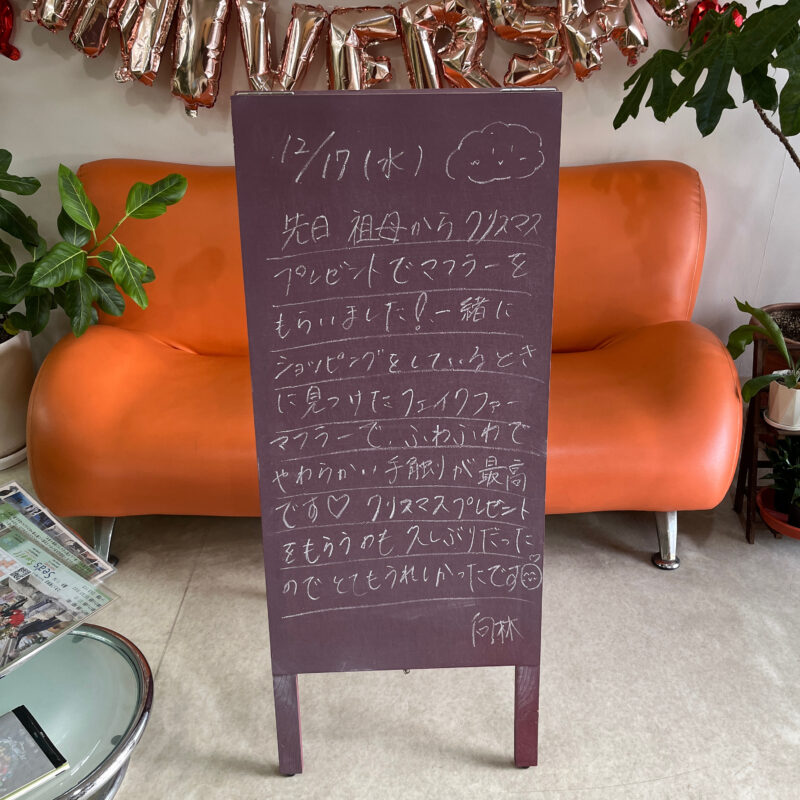 12/17(水)
先日 祖母から クリスマス
プレゼントでマフラーを
もらいました!一緒に
ショッピングをしているとき
に見つけたフェイクファー
マフラーで、ふわふわで
やわらかい手触りが最高
です♡ クリスマスプレゼント
をもらうのも 久しぶりだった
のでとてもうれしかったです
向林